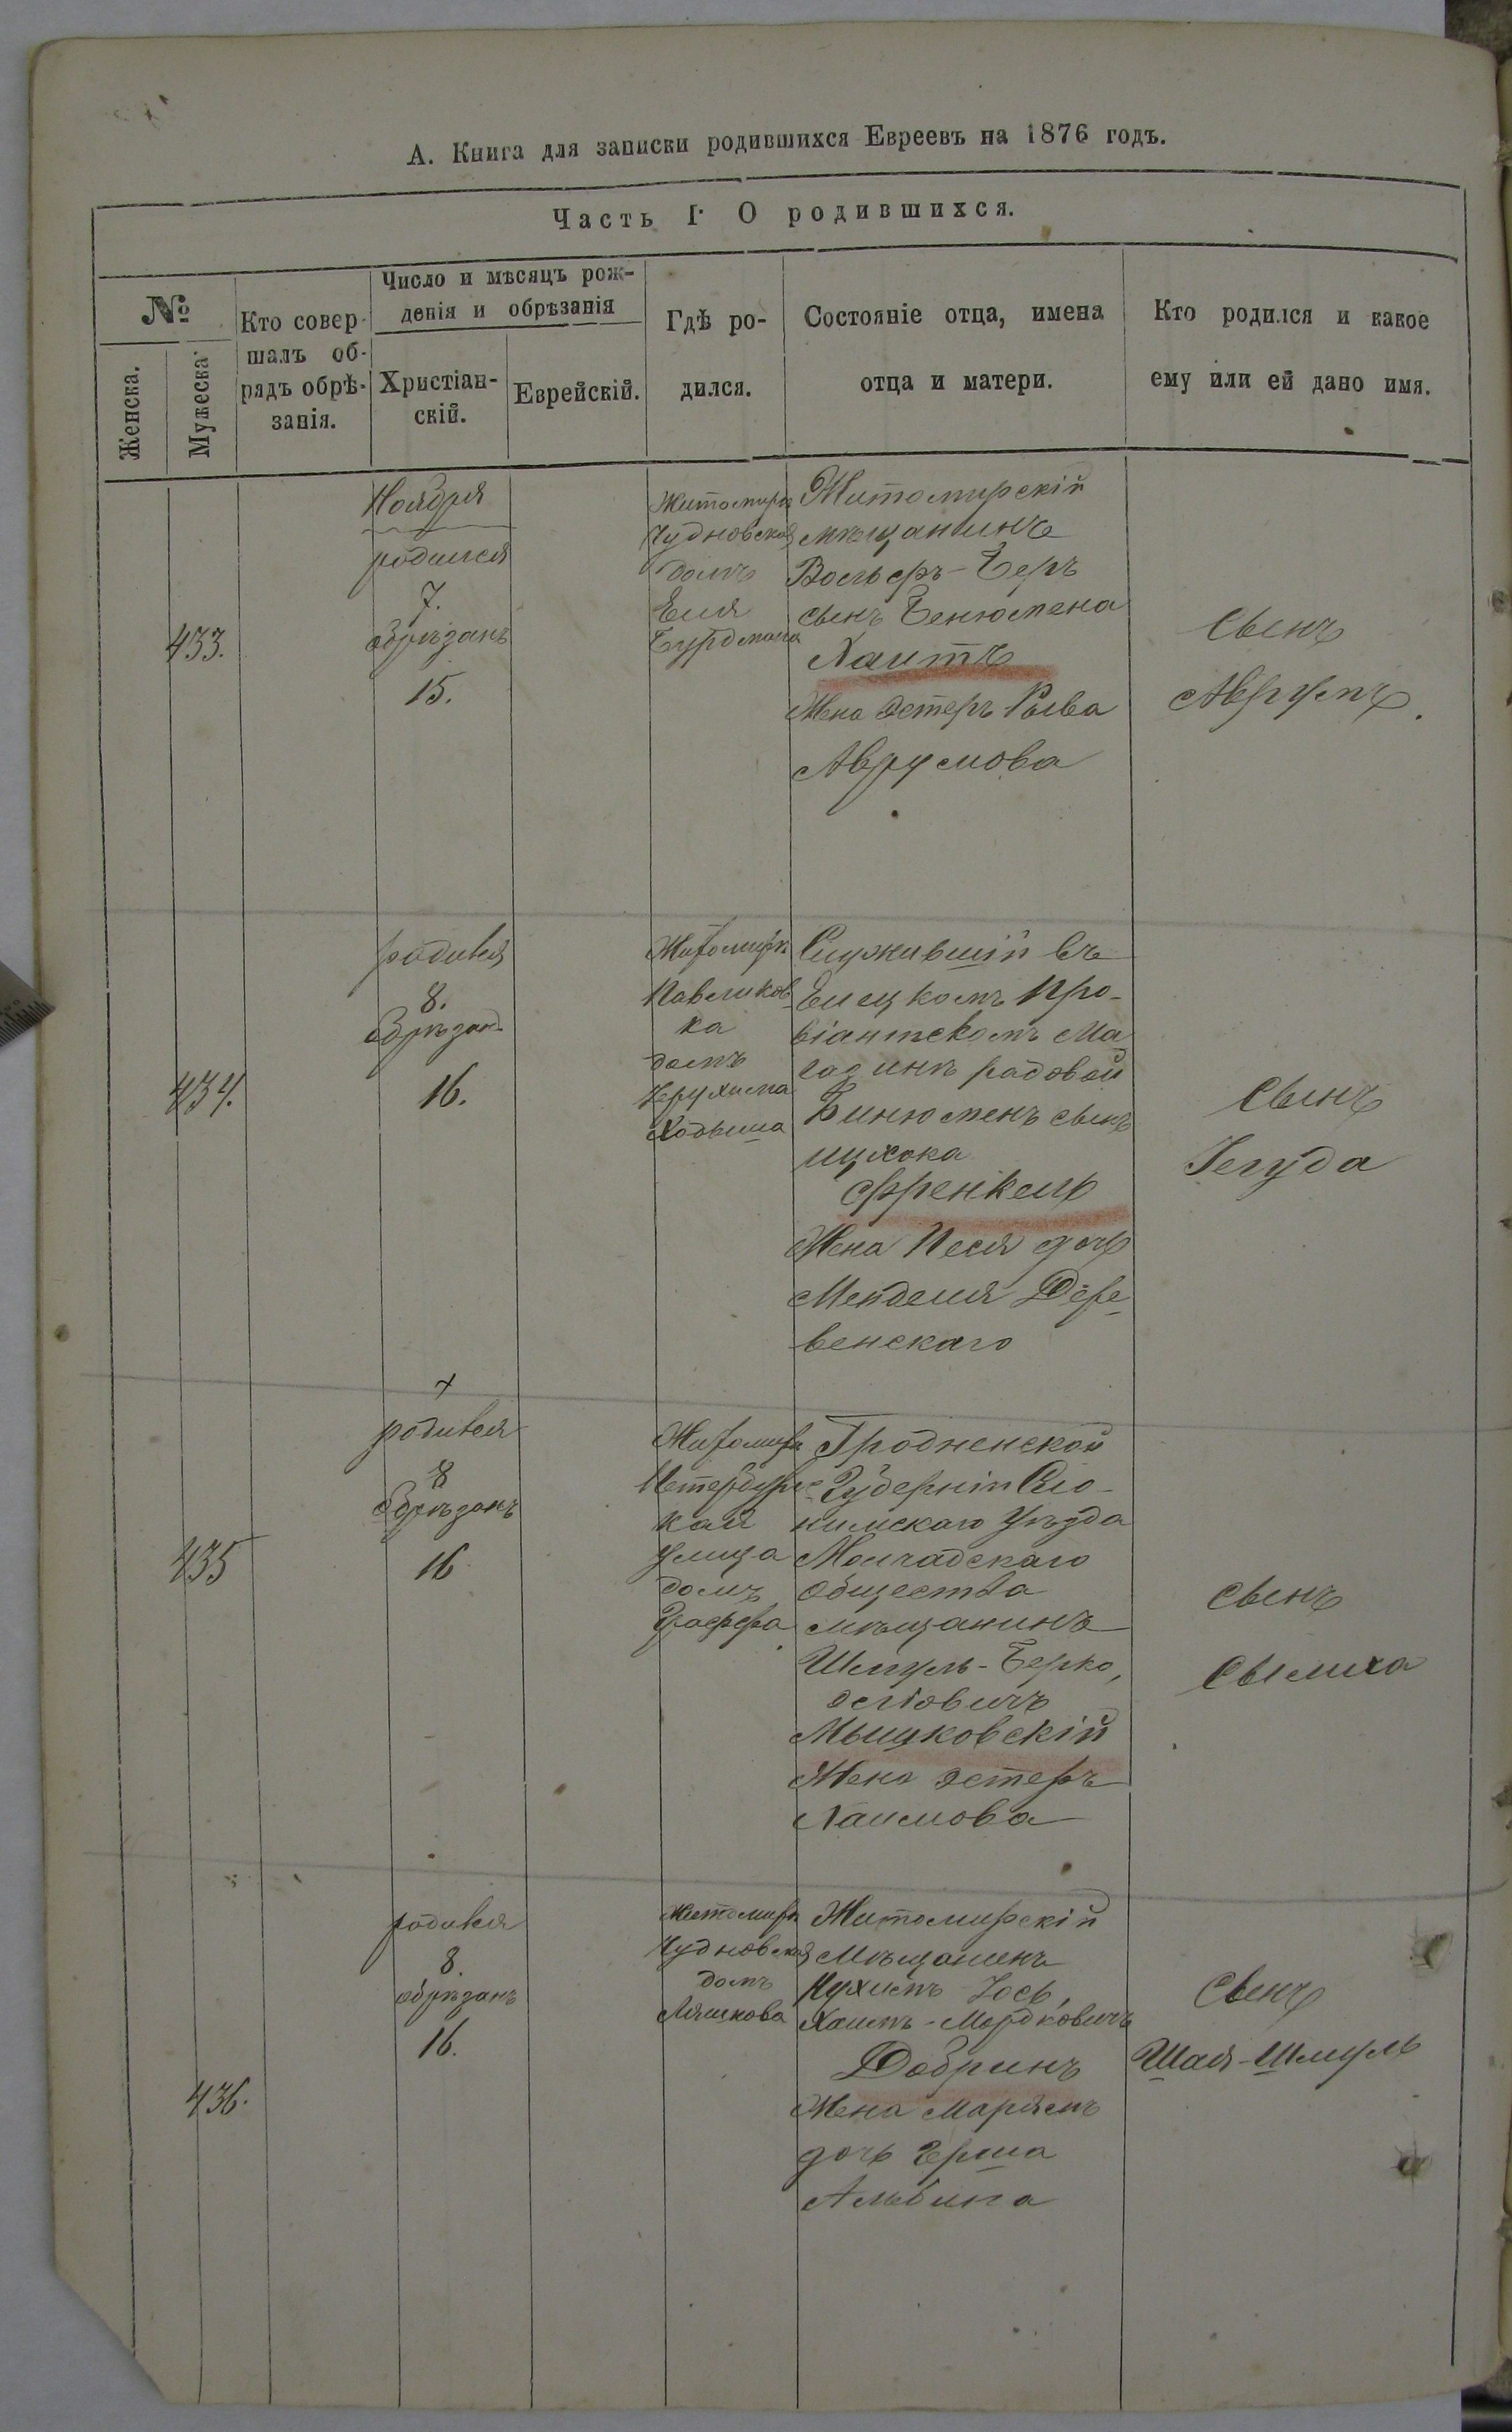 А. Книга для записки родившихся Евреевъ на 1876 годъ.
Часть I. О родившихся.
№
Женска.
Мужеска
Кто совер-
шалъ об-
рядъ обрѣ-
занія.
Число и мѣсяцъ рож-
денія и обрѣзанія
Христіан-
скій.
Еврейскій.
Гдѣ ро-
дился.
Состояніе отца, имена
отца и матери.
Кто родился и какое
ему или ей дано имя.
433.
Ноября
родился
7.
обрѣзанъ
15.
Житомиръ
Чудновская
домъ
Еля
Бурдмана
Житомирскій
мѣщанинъ
Вольфъ-Беръ
сынъ Бенюмена
Хаитъ
Жена Эстеръ Рыва
Аврумова
Сынъ
Аврумъ.
434.
родився
8.
обрѣзанъ
16.
Житомиръ
Павликов-
ка
домъ
Служившій въ
Елецкомъ про-
віантскомъ Ма
газинѣ радовой
Бинюменъ сынъ
Ицхока
Френкель
Жена Песя дочь
Менделя Дере-
венскаго
Сынъ
Іегуда
435
родився
8
обрѣзанъ
16
Житомиръ
Петербурс-
кая
улица
домъ
Гродненской
Губерніи Сло-
нимскаго Уѣзда
Молчадскаго
общества
мѣщанинъ
Шмуль-Берко,
Мышковскій
Жена Эстеръ
Хаимова
сынъ
Сымха
436.
родився
8.
обрѣзанъ
16.
Житомиръ
Чудновская
домъ
Ляшкова
Житомирскій
Мѣщанинъ
Нухимъ Іось,
Хаимъ-Мордковичъ
Добринъ
Жена Марямъ
дочь Герша
Альбина
Сынъ
Шая-Шмуль